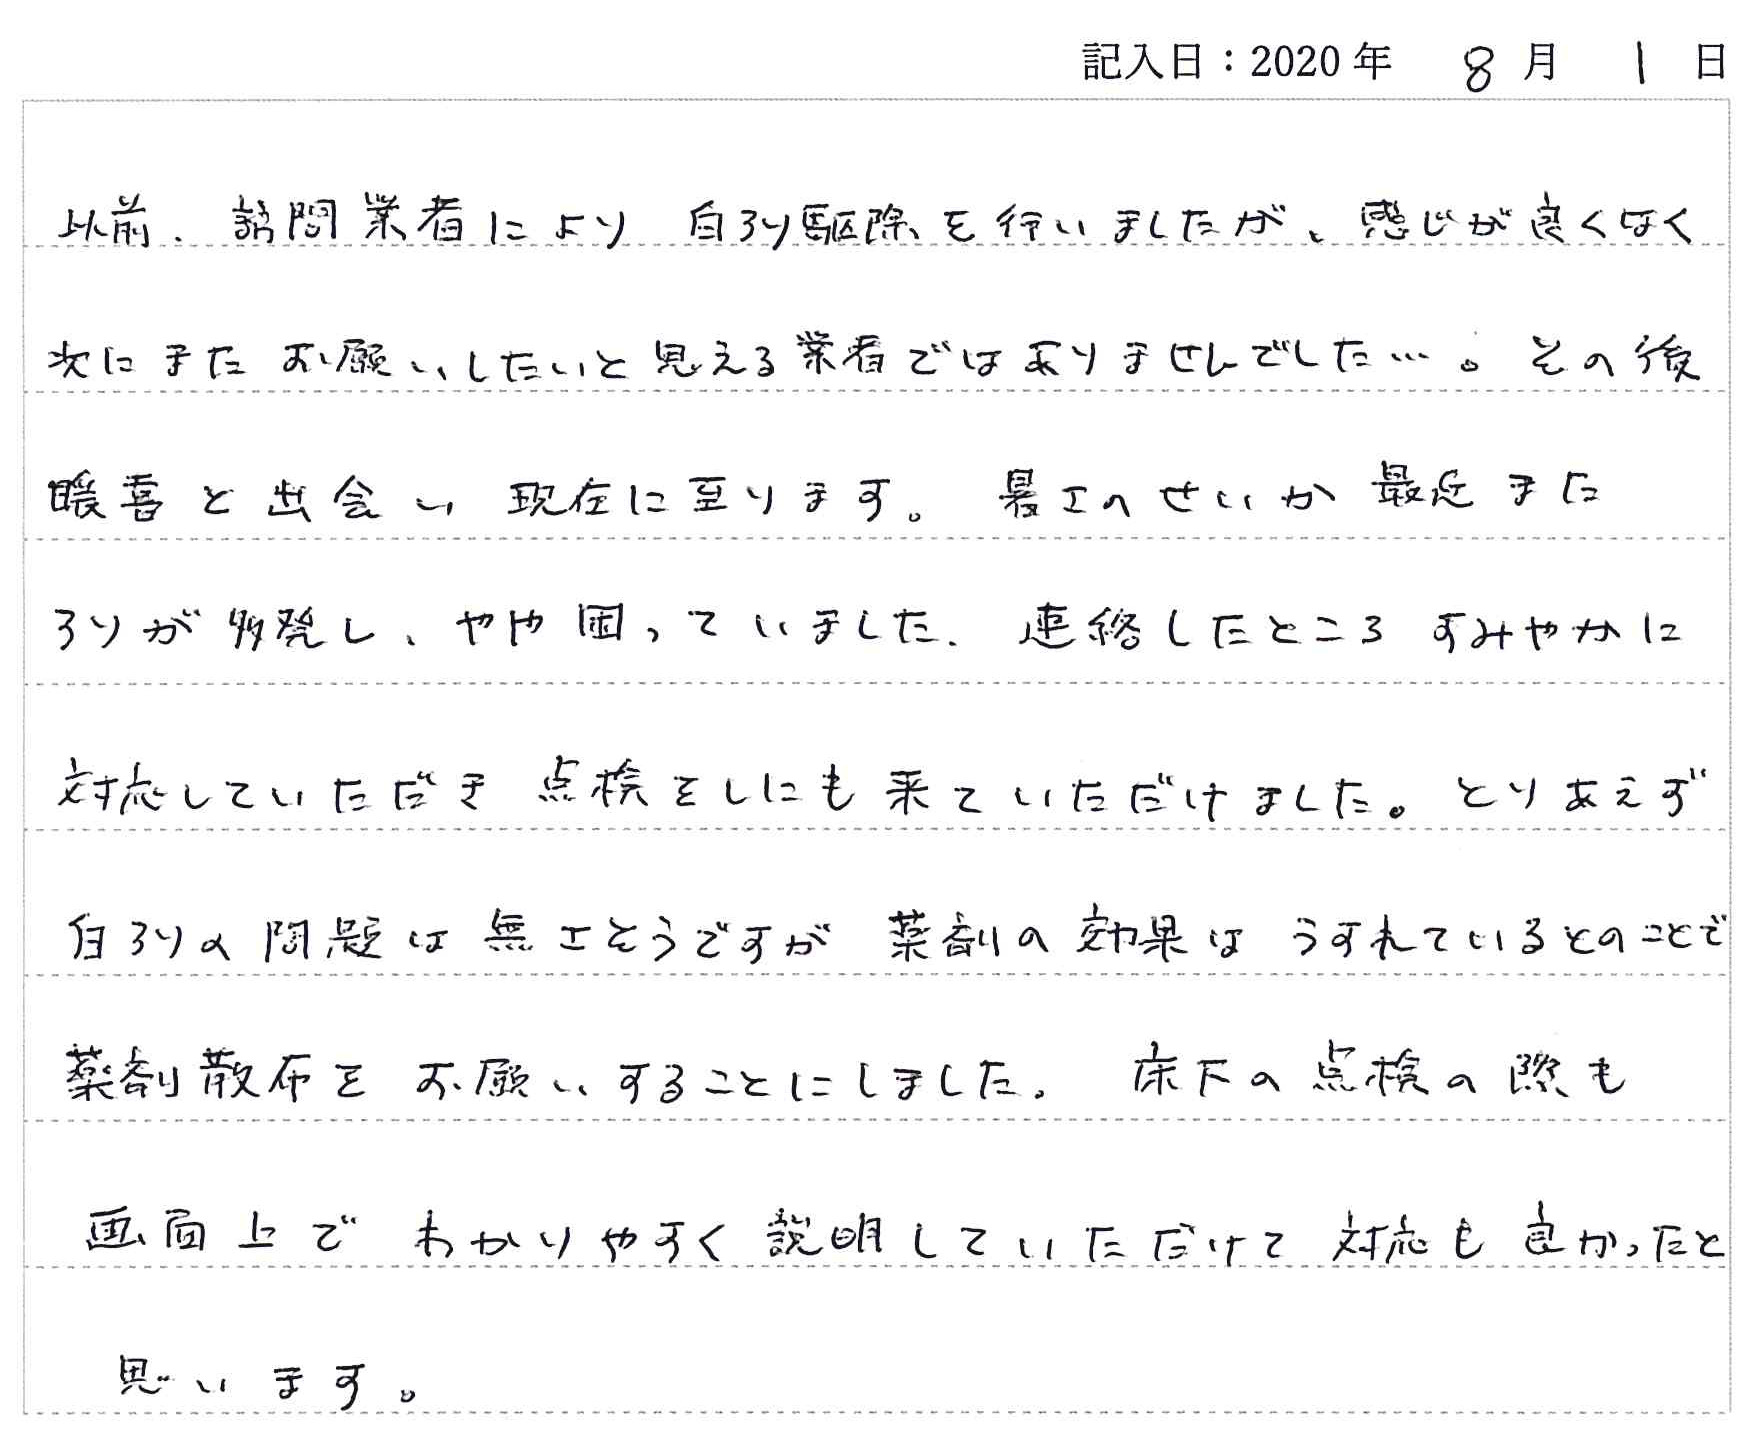 記入日：2020年 8月 1日
以前、訪問業者により 白アリ駆除を行いましたが、感じが良くなく
次にまた お願いしたいと思える業者ではありませんでした…。その後
暖喜と出会い 現在に至ります。 暑さのせいか 最近また
アリが多発し、やや困っていました。 連絡したところ すみやかに
対応していただき 点検をしにも来ていただけました。とりあえず
白アリの問題は無さそうですが 薬剤の効果は うすれているとのことで
薬剤散布を お願いすることにしました。 床下の点検の際も
画面上で わかりやすく説明していただけて 対応も良かったと
思います。